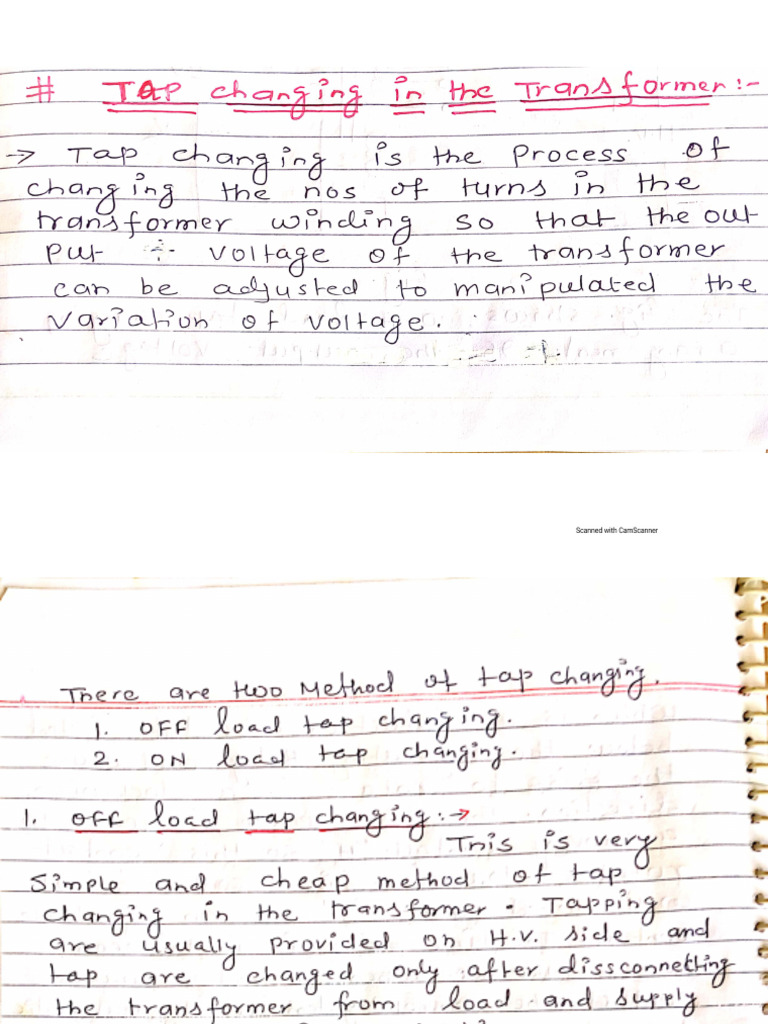 # TAP Changing in the Transformer:-
→ Tap changing is the Process of
changing the nos of turns in the
transformer winding so that the out
put voltage of the transformer
can be adjusted to manipulated the
variation of voltage.
Scanned with CamScanner
There are two Method of tap changing.
1. OFF load tap changing.
2. ON load tap changing.
1. OFF load tap changing:→
This is very
Simple and cheap method of tap
changing in the transformer. Tapping
are usually provided on H.V. side and
tap are changed only after dissconnetting
the transformer from load and supply